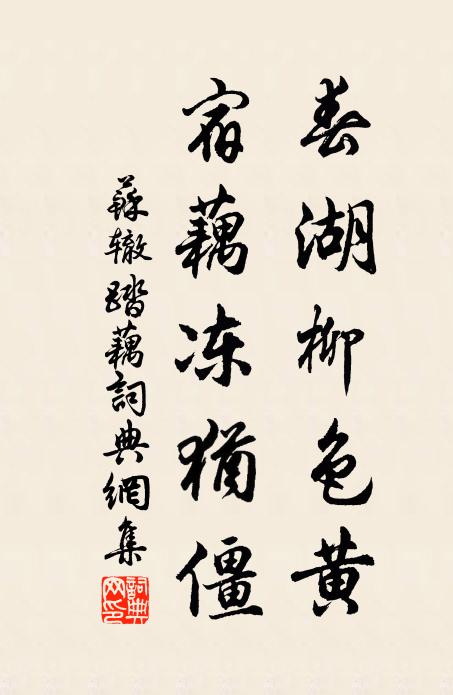 春湖柳色黄
宿藕冻犹僵
蘇辙踏藕詞典網集
詞典网印